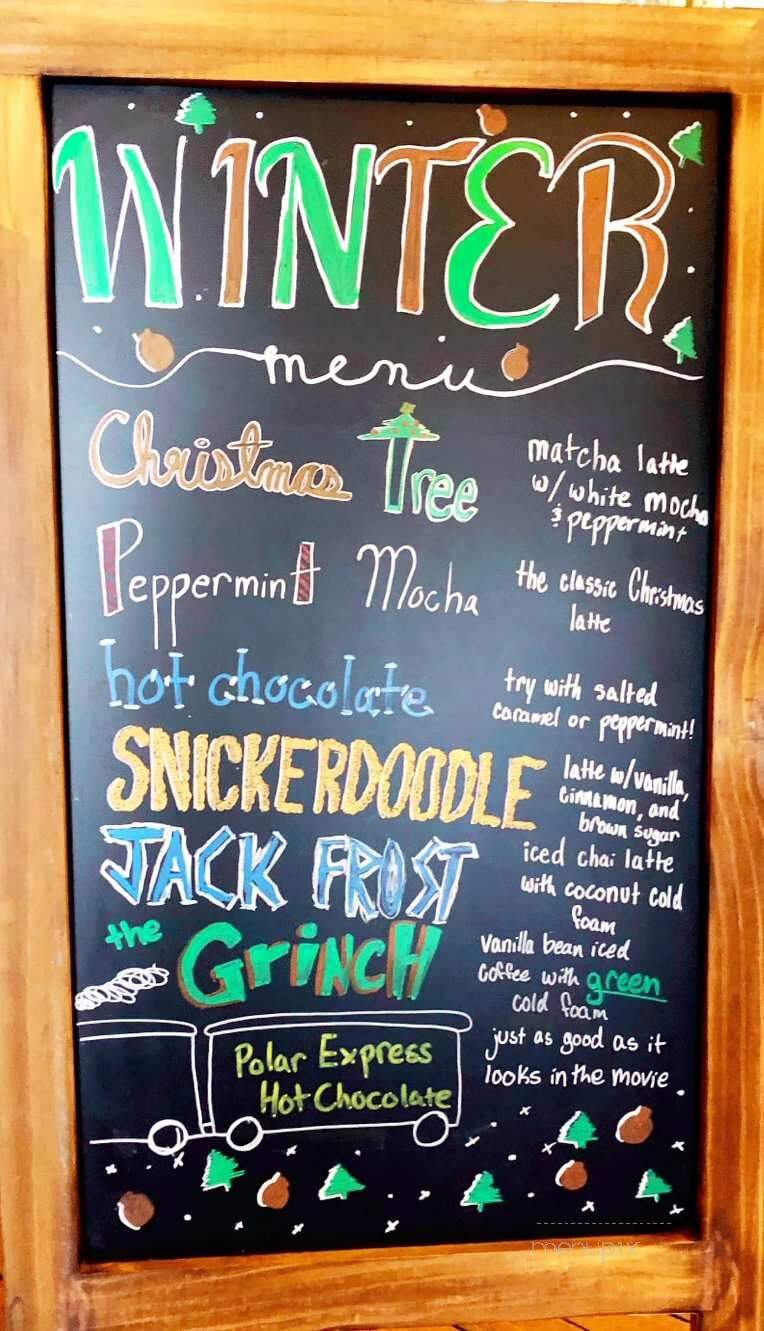 WINTER
menu
Christmas Tree
matcha latte
w/ white mocha
& peppermint
Peppermint Mocha
the classic Christmas
latte
hot chocolate
try with salted
caramel or peppermint!
SNICKERDOODLE
latte w/vanilla,
cinnamon, and
brown sugar
JACK FROST
iced chai latte
with coconut cold
foam
the GrinCH
vanilla bean iced
coffee with green
cold foam
Polar Express
Hot Chocolate
just as good as it
looks in the movie.
menupix